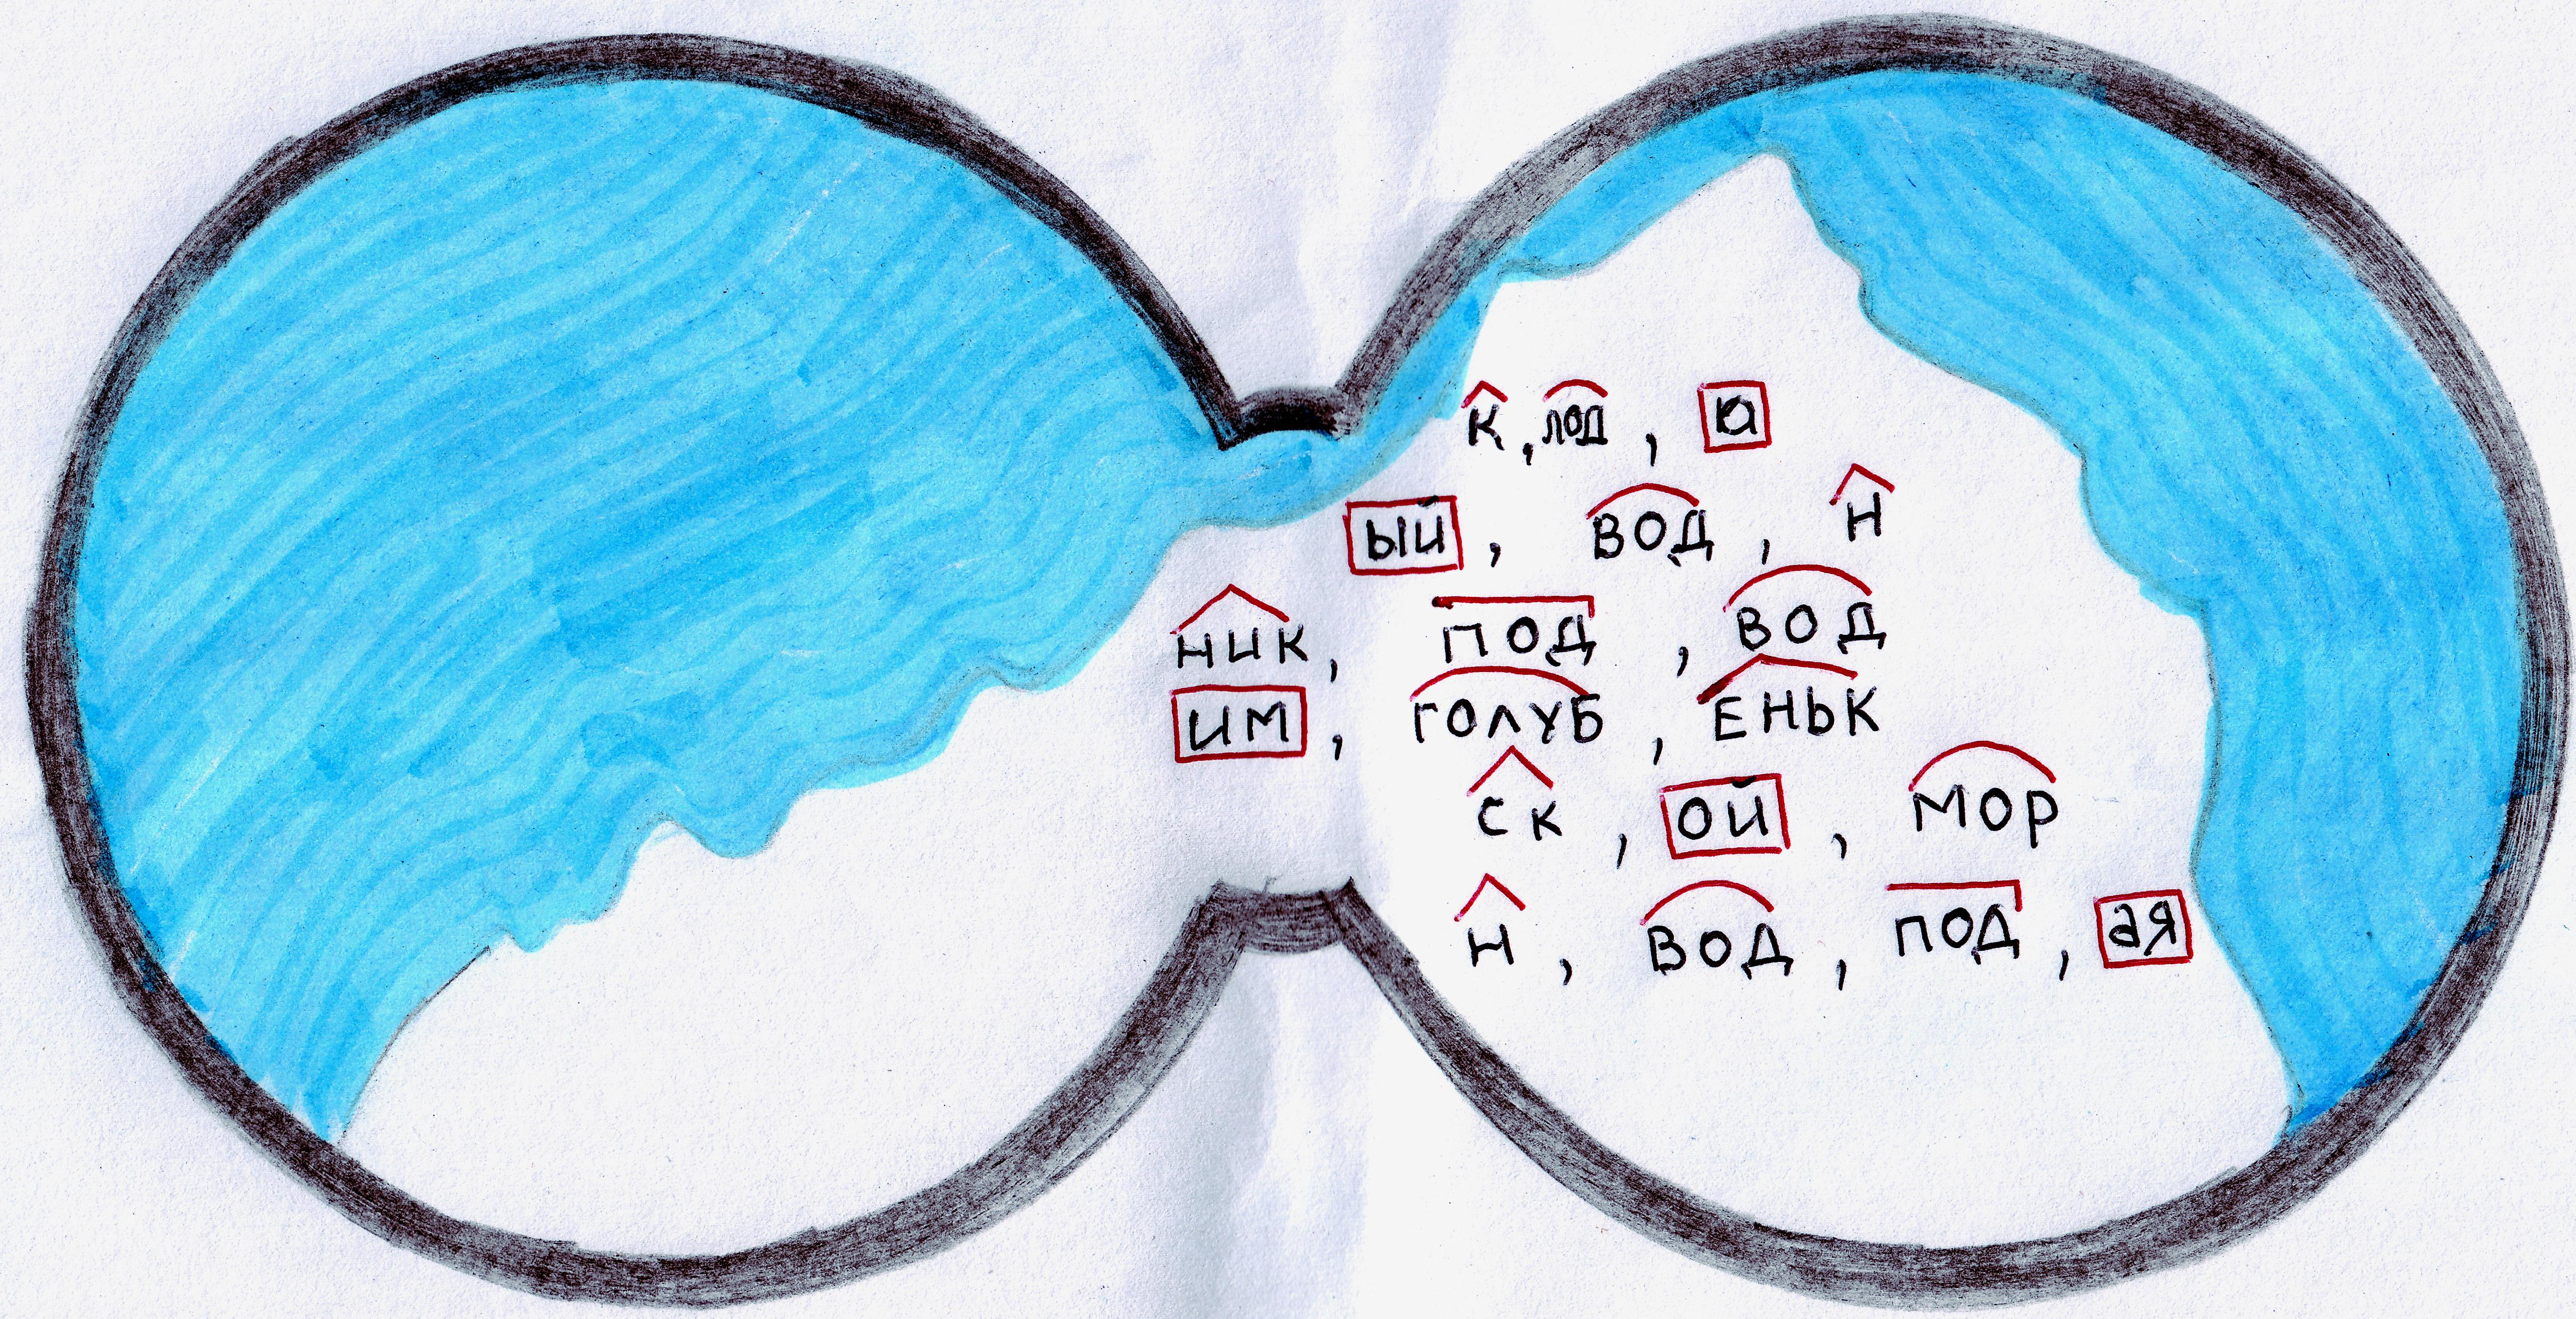 к, лод, а
ый, вод, н
ник, под, вод
им, голуб, еньк
ск, ой, мор
н, вод, под, ая